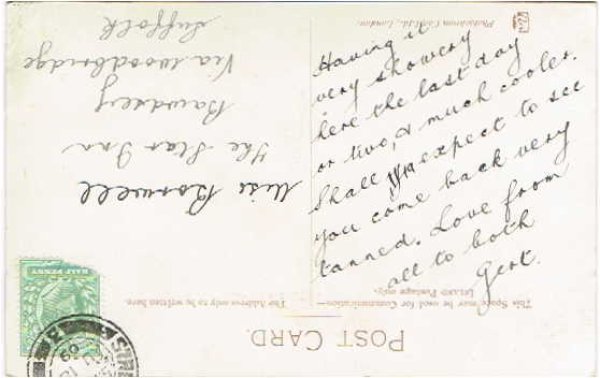 Having it
very showery
here the last day
or two, & much cooler.
Shall expect to see
you come back very
tanned. Love from
all to both
Gert.
POST CARD.
This Space may be used for Communication—
INLAND Postage only.
The Address only to be written here.
HALF PENNY
09
Miss Boswell
The Star Inn
Bawdsey
Via Woodbridge
Suffolk
Photochrom Co., Ltd., London.